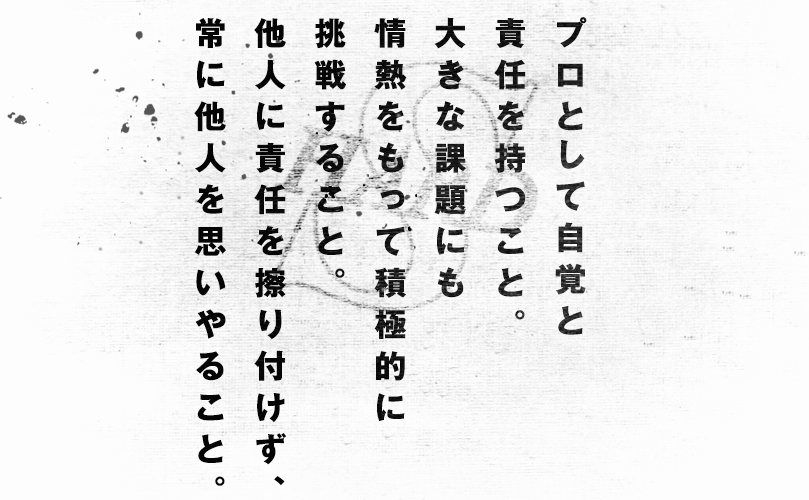 プロとして自覚と
責任を持つこと。
大きな課題にも
情熱をもって積極的に
挑戦すること。
他人に責任を擦り付けず、
常に他人を思いやること。